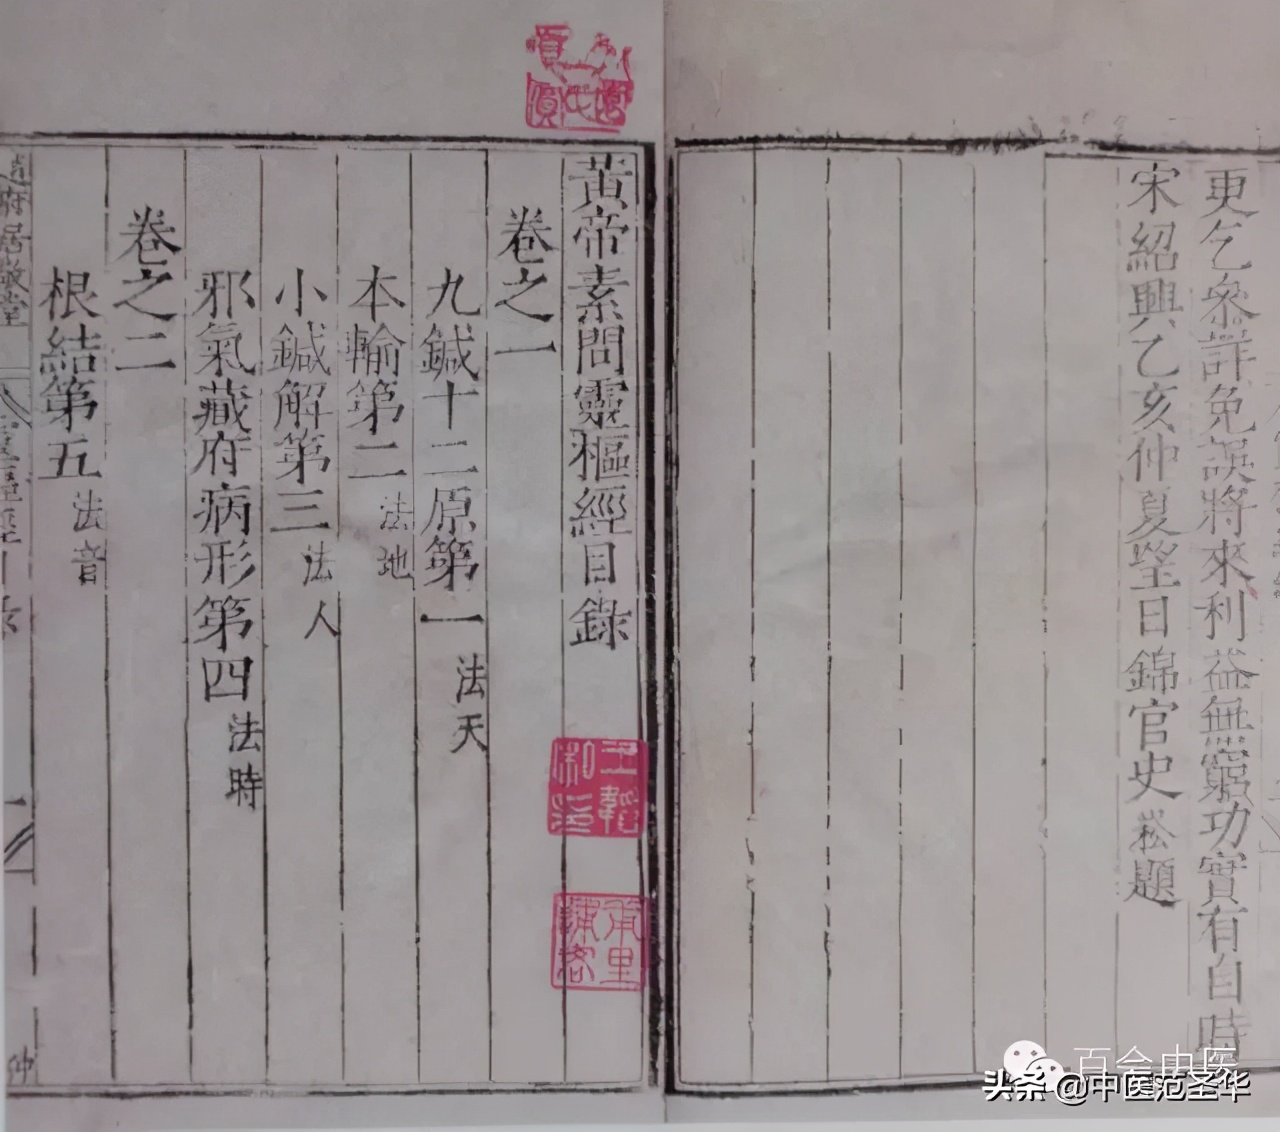 更乞參詳免誤將來利益無窮功實有自時
宋紹興乙亥仲夏望日錦官史崧題
黃帝素問靈樞經目錄
卷之一
九鍼十二原第一法天
本輸第二法地
小鍼解第三法人
邪氣藏府病形第四法時
卷之二
根結第五法音
趙府居敬堂
仲
甫里
百会中医
头条 @中医范圣华